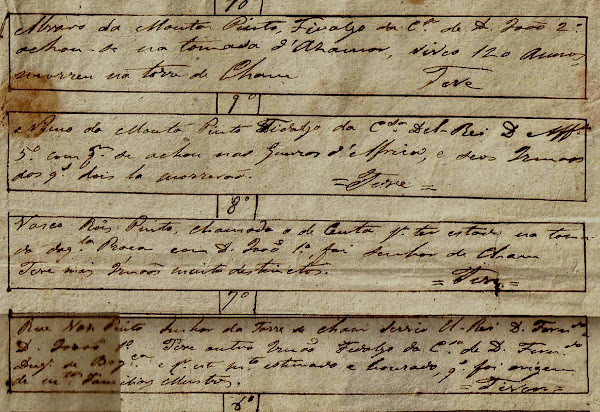 10
Alvaro da Mouta Pinto, Fidalgo da C.ª de D. João 2º
achou-se na tomada d'Azamor, viveo 120 Annos,
morreu na torre de Cham Teve
9º
Nuno da Mouta Pinto Fidalgo da C.ª del-Rei D. Aff.º
5º com q.m se achou nas Guerras d'Africa, e seos Irmaos
dos q.s dois la morrerão. =Teve=
8º
Vasco Róis Pinto, chamado o de Ceuta p.r ter estado na toma
da dag.la Praca com D. João 1º foi Senhor de Cham
Teve mais Irmãos muito destinctos. =Teve=
7º
Rui Vaz Pinto Senhor da Torre de Cham Servio El-Rei D. Fern.do
D. Joaõ 1º Teve outro Irmão Fidalgo da C.ª de D. Fern.do
Duq. de Brag.ça e p.r ser m.to estimado e honrado, q. foi origem
de m.tas Familias Illustres. =Teve=
6º